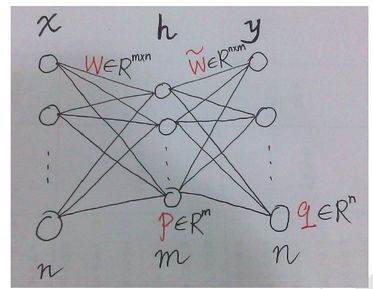 x h y
W∈R^{m×n} W̃∈R^{n×m}
p∈R^m q∈R^n
n m n